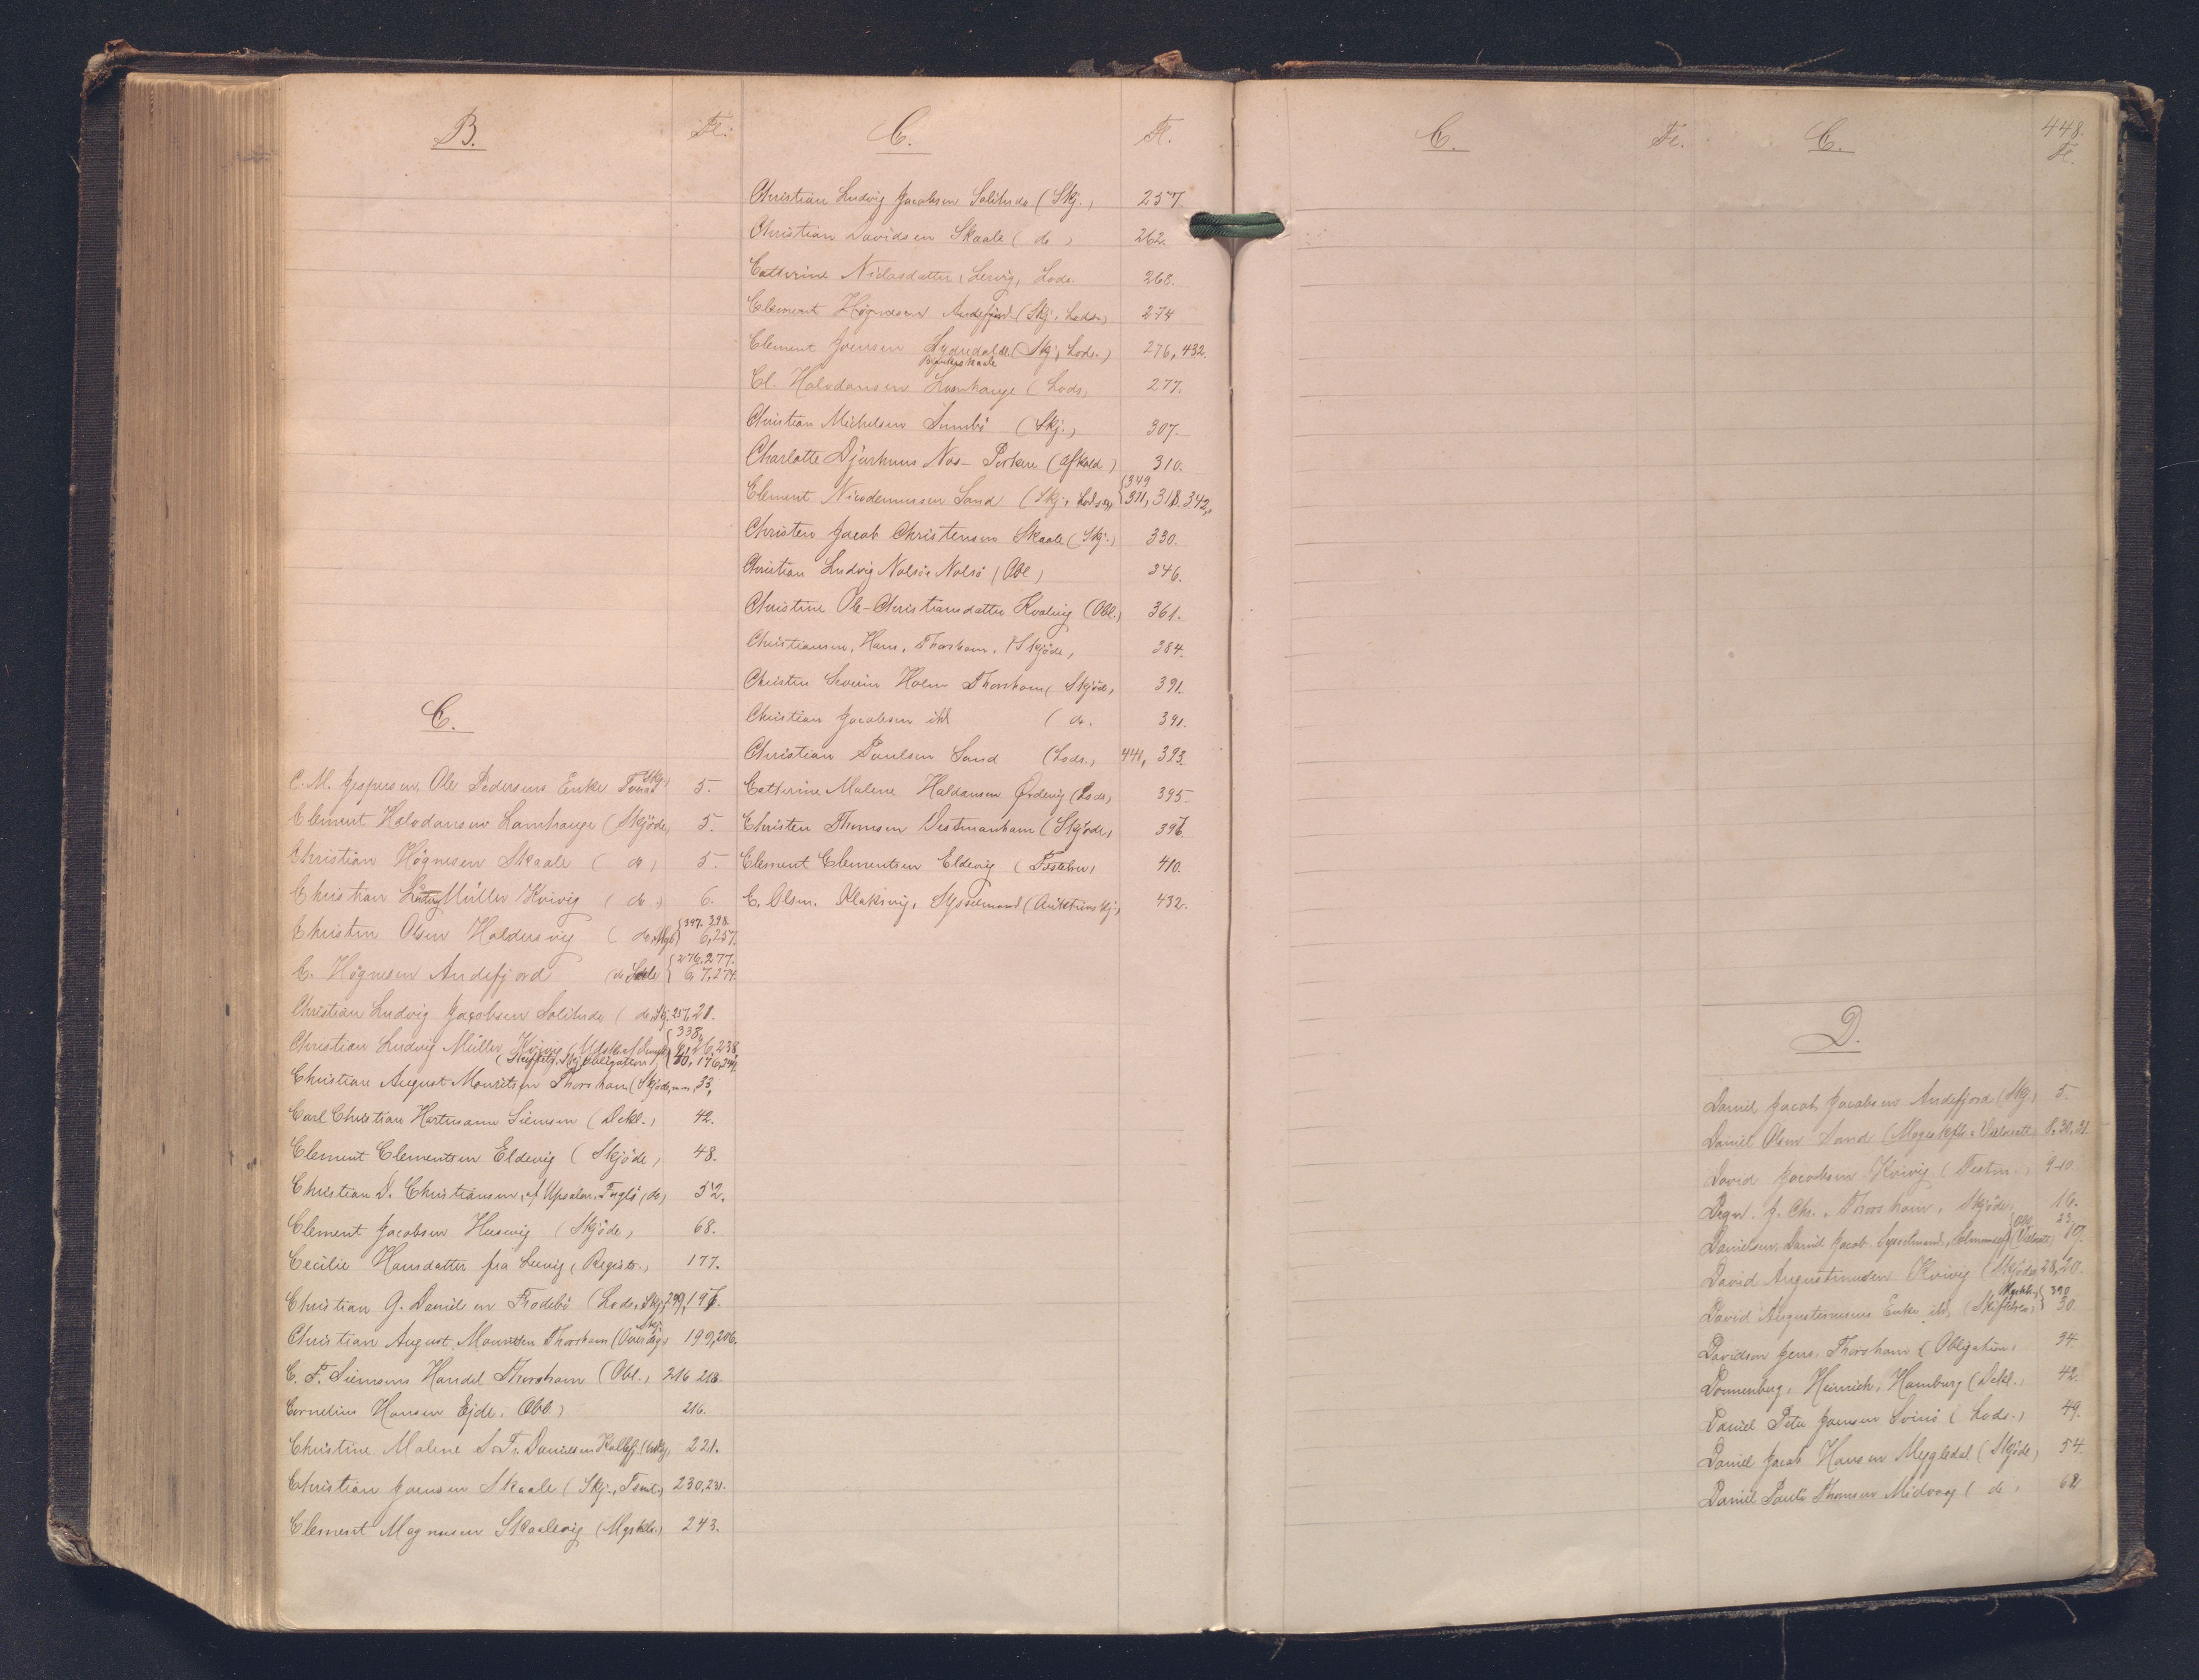 B.
Fl.
C.
C. M. Jespersen, Ole Pedersens Enke Tveraa (Skj.) 5.
Clement Halvdansen Lamhauge (Skjöde) 5.
Christian Högnesen Skaale (do) 5
Christian Ludvig Müller Kvivig (do.) 6.
Christen Olsen Haldersvig (do, {397. 398. 6, 257.
C. Högnesen Andefjord (do {276, 277. 6, 7, 274.
Christian Ludvig Jacobsen Solitude (do, Skj. 257, 21.
Christian Ludvig Müller Kvivig {338,
Obligation)
Christian August Mouritsen Thorshavn (Skjöde, 33,
Carl Christian Hartmann Siemsen (Dekl.) 42.
Clement Clementsen Eldevig (Skjöde) 48.
Christian D. Christiansen, af Fuglö (do) 52.
Clement Jacobsen Husevig (Skjöde) 68.
Cecilie Hansdatter fra Lervig (Registr.) 177.
Christian G. Danielsen Frodebö (Lods, Skj.) 197.
Christian August Mouritsen Thorshavn 199, 206.
C. F. Siemsens Handel Thorshavn (Obl.) 216 218.
Cornelius Hansen Ejde, Obl.) 216.
Christine Malene Danielsen 221.
Christian Joensen Skaale (Skj., 230, 231.
Clement Magnussen Skaalevig (Mgskb.) 243.
C.
Fl.
Christian Ludvig Jacobsen Solitude (Skj.) 257.
Christian Davidsen Skaale (do) 262.
Catherine Niclasdatter, Lervig, Lods. 268.
Clement Högnesen Andefjord (Skj. Lods.) 274
Clement Joensen Sydredal (Skj, Lods.) 276, 432.
Cl. Halvdansen Lamhauge (Lods, 277.
Christian Michelsen Sumbö (Skj.) 307.
Charlotte Djurhuus Nes- Porkere (Afkald) 310.
Clement Nicodemussen Sand (Skj., Lods {349 311, 318. 342,
Christen Jacob Christensen Skaale (Skj.) 330.
Christian Ludvig Nolsöe Nolsö (Obl) 346.
Christine Ole-Christiansdatter Kvalvig (Obl.) 361.
Christiansen, Hans, Thorshavn, (Skjöde, 384.
Christen Severin Holm Thorshavn (Skjöde, 391.
Christian Jacobsen ibd (do. 391.
Christian Poulsen Sand (Lods., 441, 393.
Catherine Malene Haldansen Ördevig (Lods, 395.
Christen Thomsen Vestmanhavn (Skjöde, 397.
Clement Clementsen Eldevig 410.
C. Olsen Klaksvig, Sysselmand (Auktions Skj.) 432.
C.
Fl.
C.
448.
Fl.
D.
Daniel Jacob Jacobsen Andefjord (Skj) 5.
Daniel Olsen Sand (Mageskifte 8, 30, 31.
David Jacobsen Kvivig (Testm.) 9-10.
Degn. J. Chr., Thorshavn, Skjöde, 16.
Danielsen, Daniel Jacob Sysselmand, (Obl 23. 107.
David Augustinussen Kvivig (Skjöde 28, 20.
David Augustinussens Enke ibd. { 390 30.
Davidsen Jens, Thorshavn (Obligation, 34.
Donnenberg, Heinrich, Hamburg (Dekl.) 42.
Daniel Peter Joensen Svinö (Lods.) 49.
Daniel Jacob Hansen Mygledal (Skjöde) 54.
Daniel Pauli Thomsen Midvaag (do, 62